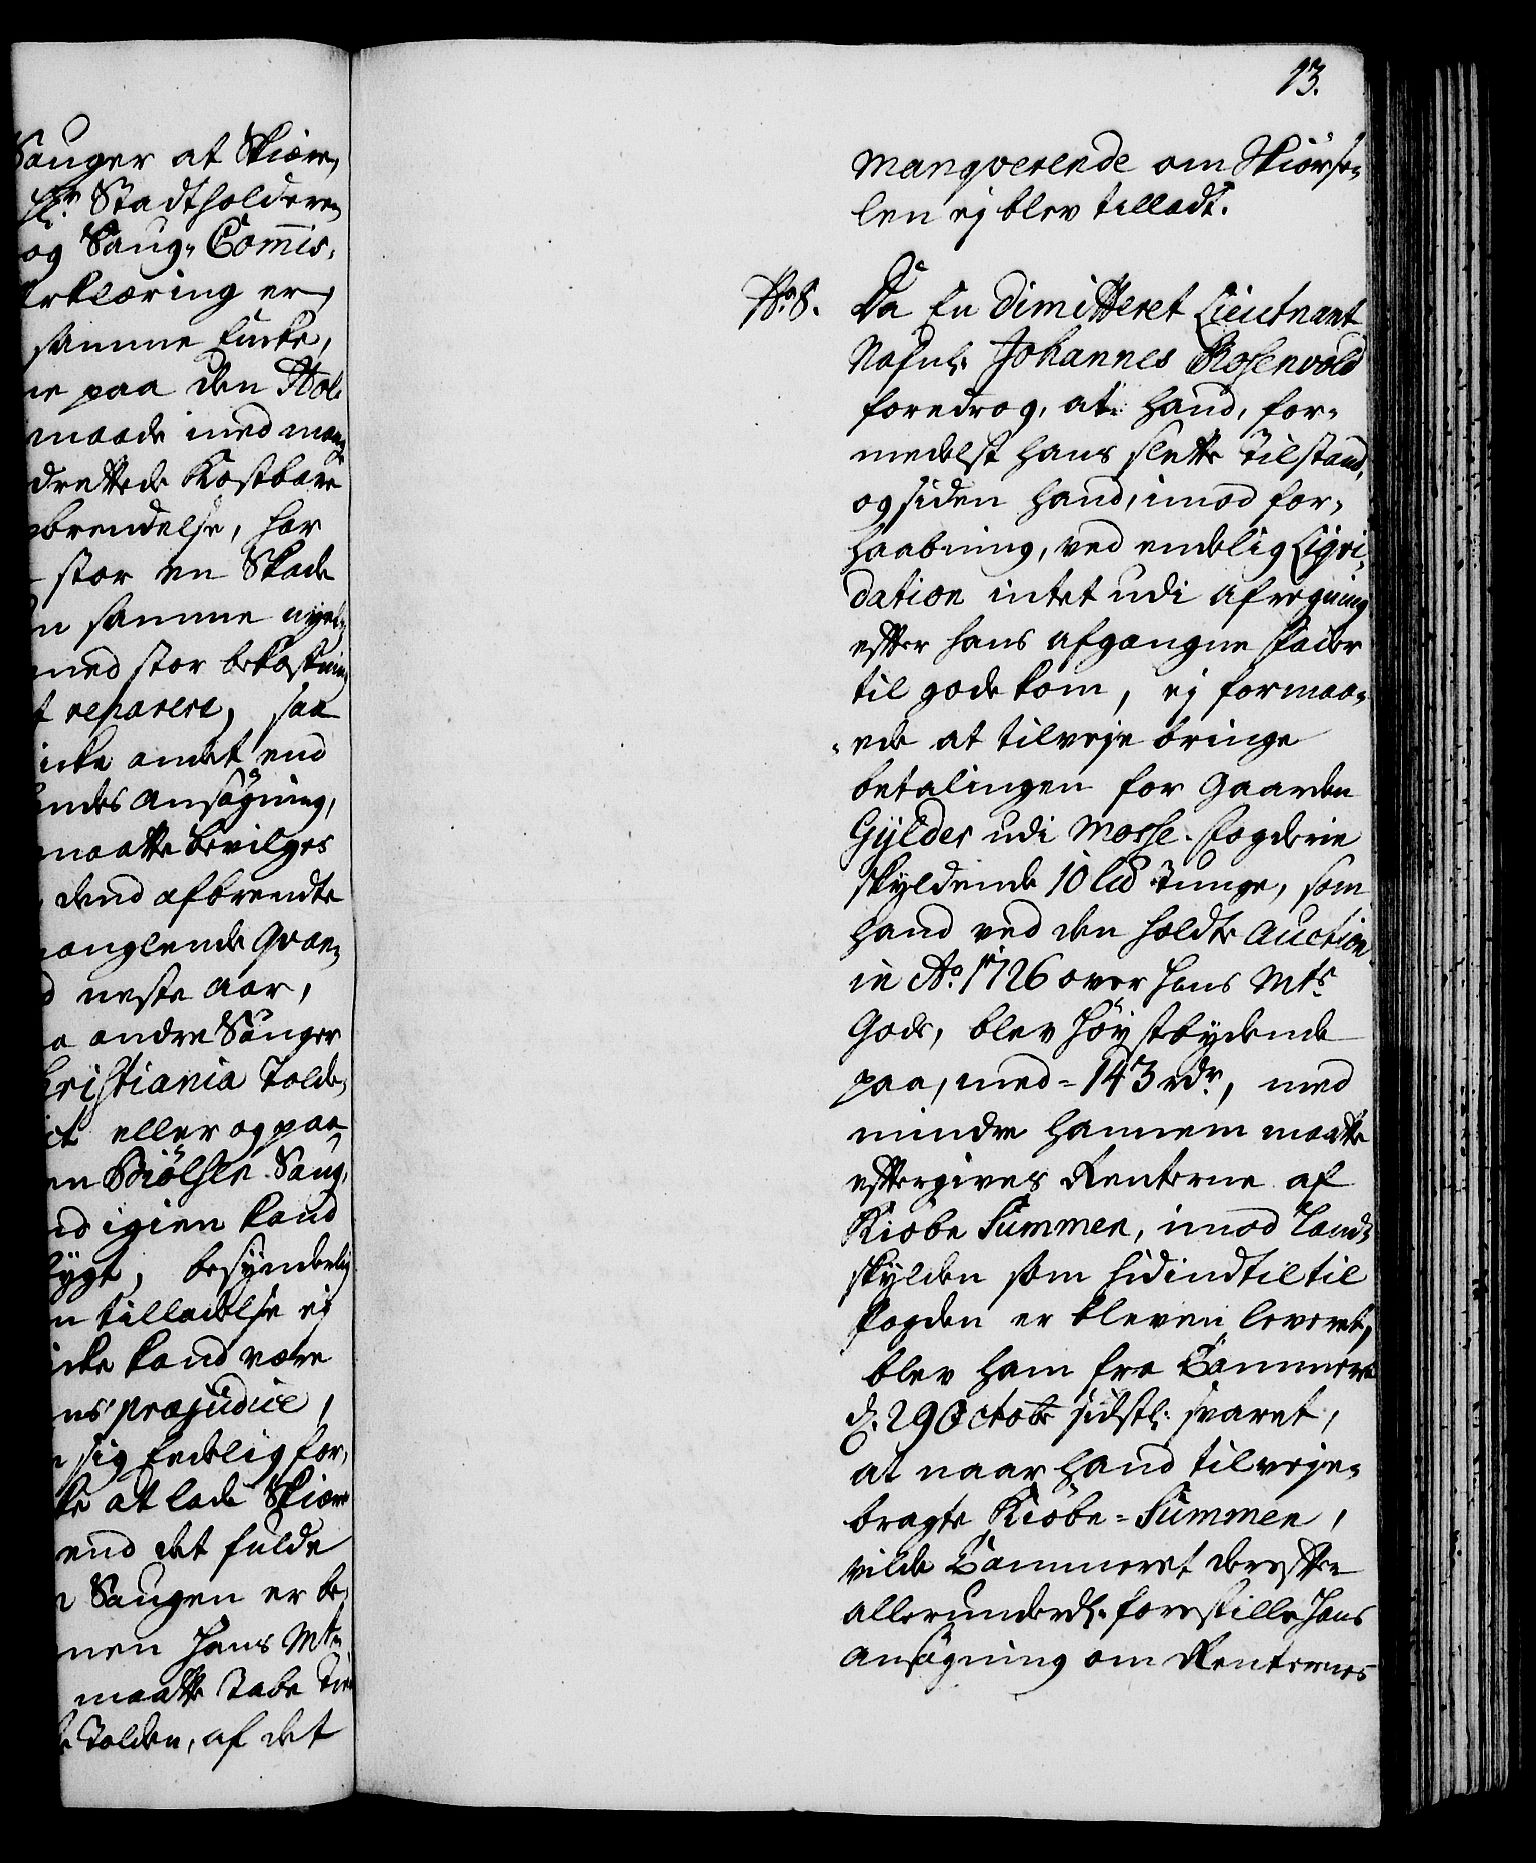 Sauger at Skiære,
Hr. Stadtholderen
og Saug-Commis-
Erklæring er,
samme Eiicke,
ne paa den Hol-
maade med mang
drettede Kostbare
brendelse, har
stor en Skade
n samme nyel-
med stor bekostning
t reparere, saa
icke andet end
andes Ansøgning,
maatte bevilges
dend afbrendte
manglende Qvan-
d neste aar,
a andre Sauger
Christiania Tolde-
ct eller og paa
en Biölsen-Saug,
nd igien kand
bygt, besynderlig
n tilladelse ei
icke kand være
ns præjudice,
sig Endelig for-
ke at lade Skiære
end det fulde
Saugen er be-
men Hans Mts
maatte Tabe Tien
Tolden, af det
13.
manqverende om Skiörse-
len ej blev tilladt.
No. 8. Da En dimitteret Lieutnant
Nafnl: Johannes Rosenvold
foredrog, at hand, for-
medelst hans slette Tilstand,
og siden hand, imod for-
haabning, ved endelig Liqvi-
dation intet udi afregning
efter hans afgangne Fader
til gode kom, ej formaa-
ede at tilveje bringe
betalingen for Gaarden
Gylder udi Mosse-Fogderie
skyldende 10 l℔ Tunge, som
hand ved den holdte Auction
in Ao. 1726 over Hans Mts
Gods, blev Höystbydende
paa, med 143 rdr, med
mindre hannem maatte
eftergives Renterne af
Kiöbe Summen, imod Land-
skylden som hidindtil til
Fogden er bleven leveret,
blev ham fra Cammeret
d. 29 Octobr sidstl: svaret,
at naar hand tilveje-
bragte Kiöbe-Summen,
vilde Cammeret derefter
allerunderd: forestille Hans
Ansögning om Renternes